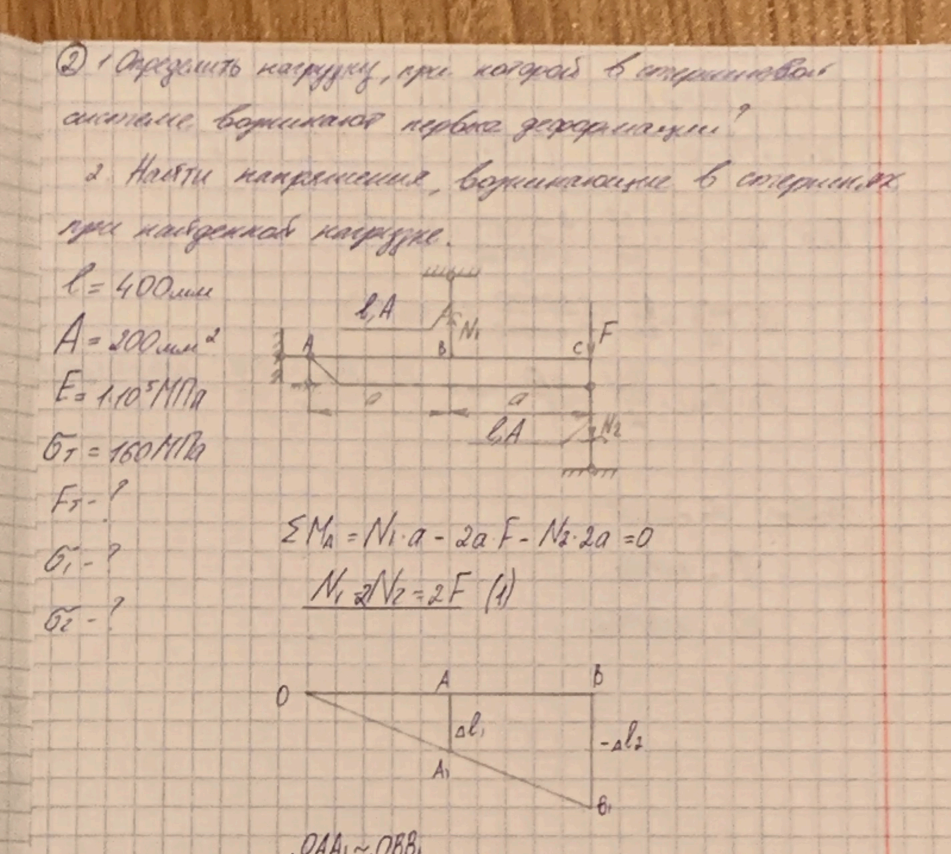 ② 1 Определить нагрузку, при которой в стержневой
системе возникают первые деформации?
2. Найти напряжения, возникающие в стержнях
при найденной нагрузке.
l = 400мм
A = 200мм²
E = 1·10⁵МПа
σт = 160МПа
Fт - ?
σ₁ - ?
σ₂ - ?
l, A
N₁
F
A
B
C
a
a
l, A
N₂
ΣMA = N₁·a - 2a·F - N₂·2a = 0
N₁ - 2N₂ = 2F (1)
O
A
B
Δl₁
-Δl₂
A₁
B₁
OAA₁ ~ OBB₁